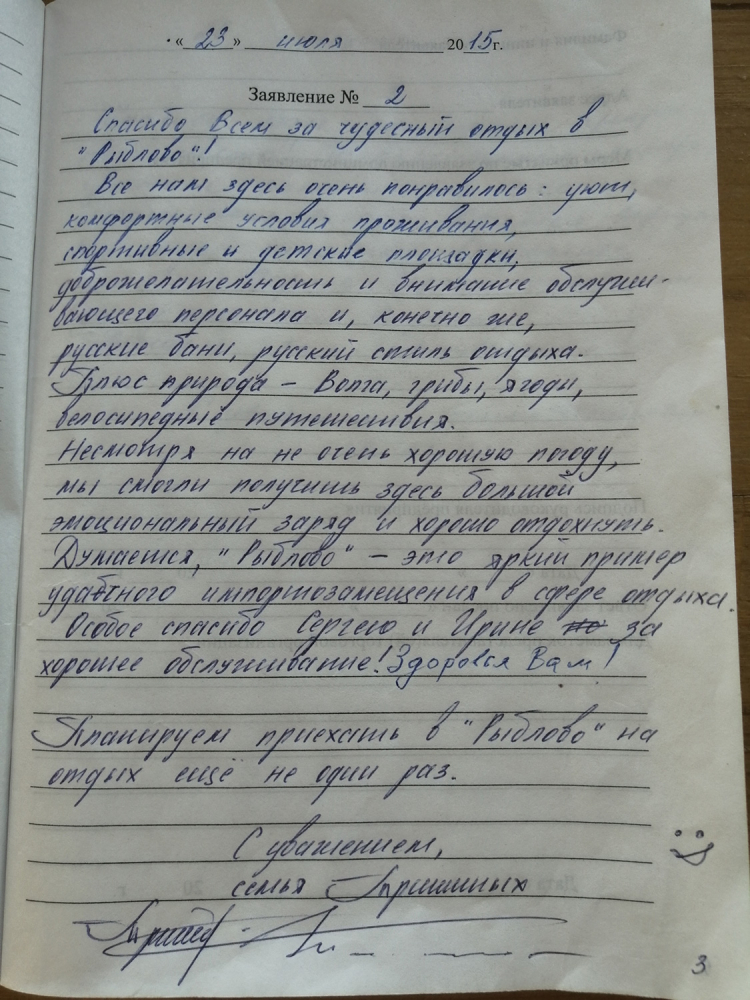 « 23 » июля 2015 г.
Заявление № 2
Спасибо Всем за чудесный отдых в
"Рыблово"!
Все нам здесь очень понравилось: уют,
комфортные условия проживания,
спортивные и детские площадки,
доброжелательность и внимание обслужи-
вающего персонала и, конечно же,
русские бани, русский стиль отдыха.
Плюс природа – Волга, грибы, ягоды,
велосипедные путешествия.
Несмотря на не очень хорошую погоду,
мы смогли получить здесь большой
эмоциональный заряд и хорошо отдохнуть.
Думается, "Рыблово" – это яркий пример
удачного импортозамещения в сфере отдыха.
Особое спасибо Сергею и Ирине за
хорошее обслуживание! Здоровья Вам!
Планируем приехать в "Рыблово" на
отдых ещё не один раз.
С уважением,
семья
3